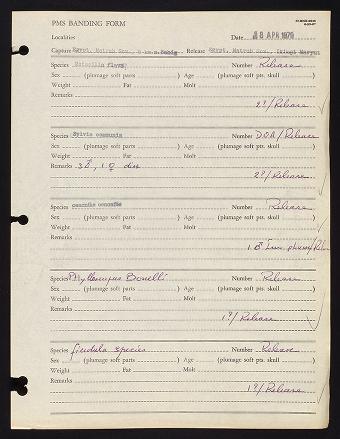 PMS BANDING FORM
Localities Date 18 APR 1970
Capture Egypt, Matruh Gov., Release Egypt, Matruh Gov., Ikingi Maryut
Species Motacilla flava Number Release
Sex (plumage soft parts) Age (plumage soft pts. skull
Weight Fat Molt
Remarks
2?/Release
Species Sylvia communis Number DOA/Release
Sex (plumage soft parts) Age (plumage soft pts. skull
Weight Fat Molt
Remarks 3♂, 1♀ doa
2?/Release
Species oenanthe oenanthe Number Release
Sex (plumage soft parts) Age (plumage soft pts. skull
Weight Fat Molt
Remarks
1♂
Species Phylloscopus Bonelli Number Release
Sex (plumage soft parts) Age (plumage soft pts. skull
Weight Fat Molt
Remarks
1?/Release
Species ficedula species Number Release
Sex (plumage soft parts) Age (plumage soft pts. skull
Weight Fat Molt
Remarks
1?/Release